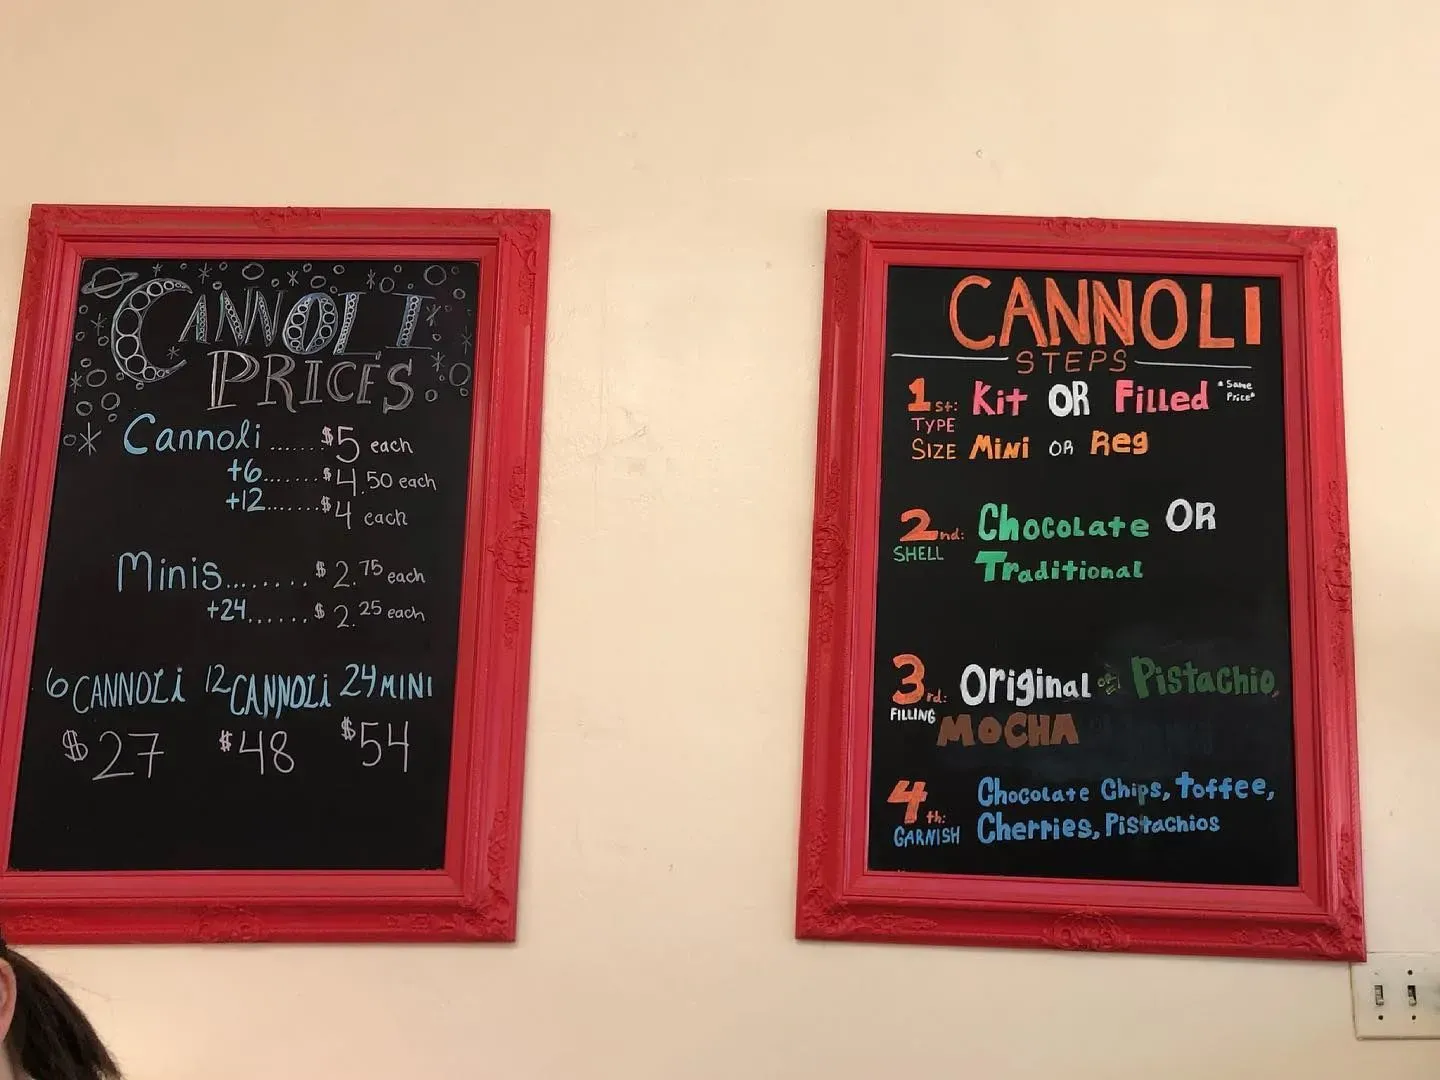 CANNOLI
PRICES
Cannoli ..... $5 each
+6....... $4.50 each
+12....... $4 each
Minis........ $2.75 each
+24....... $2.25 each
6 CANNOLi 12 CANNOLi 24 MINI
$27 $48 $54
CANNOLI
STEPS
1st: Kit OR Filled *Same Price*
TYPE
SIZE Mini OR Reg
2nd: Chocolate OR
SHELL Traditional
3rd: Original or Pistachio,
FILLING MOCHA
4th: Chocolate Chips, Toffee,
GARNISH Cherries, Pistachios